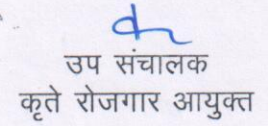 उप संचालक
कृते रोजगार आयुक्त